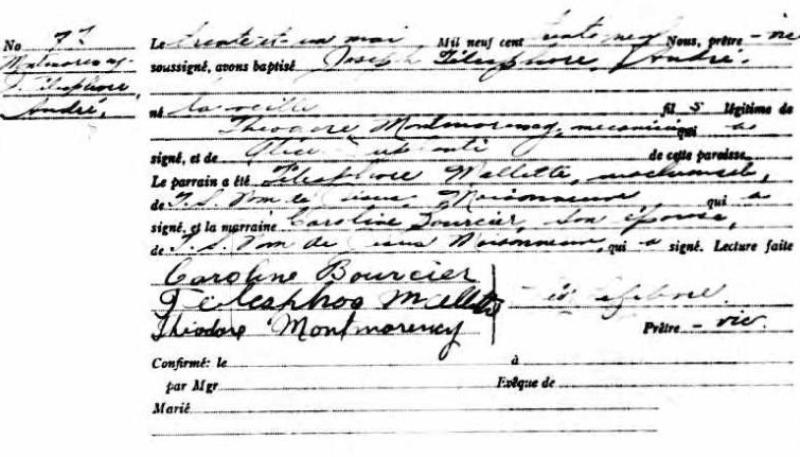 No 7
Montmorency
J. Télesphore
André.
Le trente et un mai Mil neuf cent trente neuf Nous, prêtre - vic
soussigné, avons baptisé Joseph Télesphore, André.
né la veille fils légitime de
Théodore Montmorency, mécanicien qui a
signé, et de Alice de cette paroisse
Le parrain a été Télesphore Mallette,
de T. S. Nom de Jésus, Maisonneuve, qui a
signé, et la marraine Caroline Bourcier, son épouse,
de T. S. Nom de Jésus Maisonneuve, qui a signé. Lecture faite
Caroline Bourcier
Télesphos Mallette
Théodore Montmorency
Lefebvre.
Prêtre - vic.
Confirmé: le à
par Mgr Evêque de
Marié